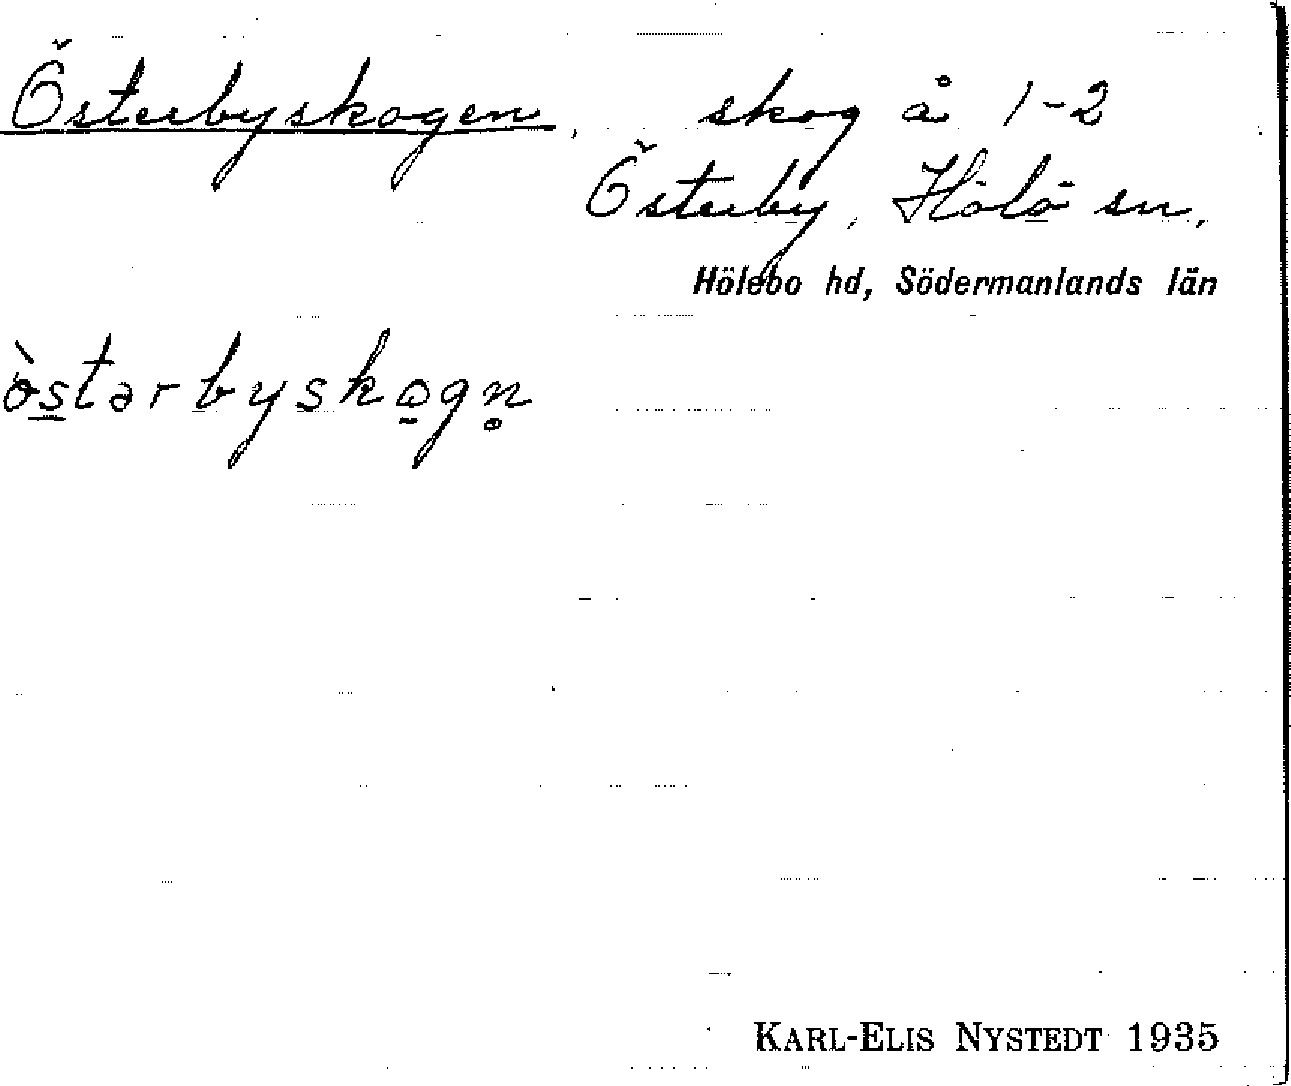 Österbyskogen, skog å 1-2
Österby, Hölö sn,
Hölebo hd, Södermanlands län
òstərbyskogn̥
KARL-ELIS NYSTEDT 1935